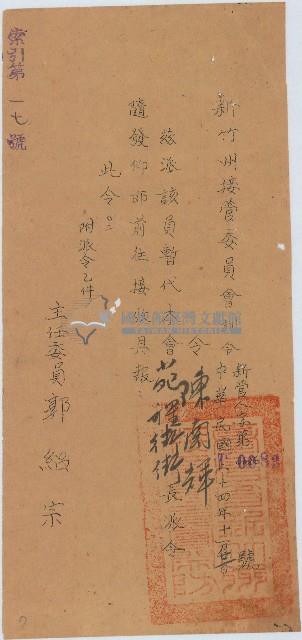 索引第一七號
新竹州接管委員會訓令
新管人字第0889號
中華民國三十四年十二月
令
陳闊輝
茲派該員暫代本會苑裡街街長派令
隨發仰即前往接收具報
此令。
附派令乙件
主任委員 郭紹宗
國史館臺灣文獻館
TAIWAN HISTORICA